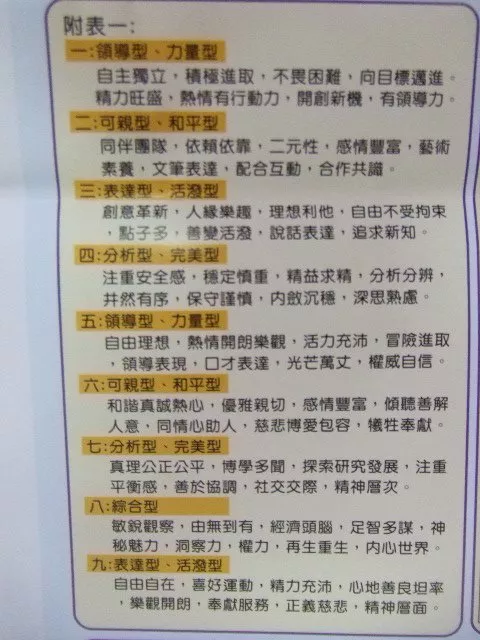 附表一:
一:領導型、力量型
自主獨立，積極進取，不畏困難，向目標邁進。
精力旺盛，熱情有行動力，開創新機，有領導力。
二:可親型、和平型
同伴團隊，依賴依靠，二元性，感情豐富，藝術
素養，文筆表達，配合互動，合作共識。
三:表達型、活潑型
創意革新，人緣樂趣，理想利他，自由不受拘束
，點子多，善變活潑，說話表達，追求新知。
四:分析型、完美型
注重安全感，穩定慎重，精益求精，分析分辨，
井然有序，保守謹慎，內斂沉穩，深思熟慮。
五:領導型、力量型
自由理想，熱情開朗樂觀，活力充沛，冒險進取
，領導表現，口才表達，光芒萬丈，權威自信。
六:可親型、和平型
和諧真誠熱心，優雅親切，感情豐富，傾聽善解
人意，同情心助人，慈悲博愛包容，犧牲奉獻。
七:分析型、完美型
真理公正公平，博學多聞，探索研究發展，注重
平衡感，善於協調，社交交際，精神層次。
八:綜合型
敏銳觀察，由無到有，經濟頭腦，足智多謀，神
秘魅力，洞察力，權力，再生重生，內心世界。
九:表達型、活潑型
自由自在，喜好運動，精力充沛，心地善良坦率
，樂觀開朗，奉獻服務，正義慈悲，精神層面。